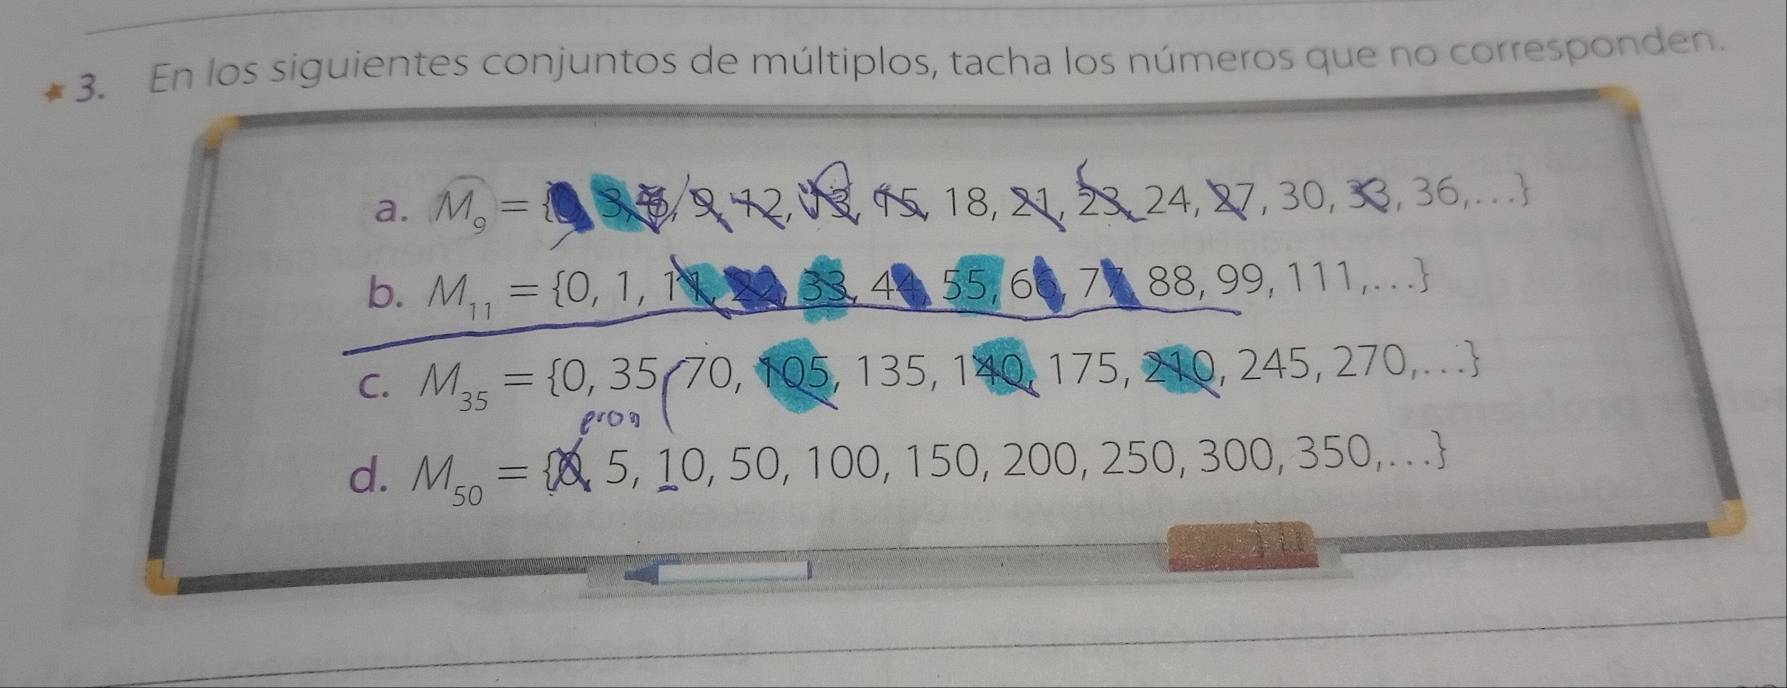 ★ 3. En los siguientes conjuntos de múltiplos, tacha los números que no corresponden.
a. M₉ = {0, 3, 6, 9, 12, 13, 15, 18, 21, 23, 24, 27, 30, 33, 36,...}
b. M₁₁ = {0, 1, 11, 22, 33, 44, 55, 66, 77, 88, 99, 111,...}
c. M₃₅ = {0, 35, 70, 105, 135, 140, 175, 210, 245, 270,...}
d. M₅₀ = {0, 5, 10, 50, 100, 150, 200, 250, 300, 350,...}